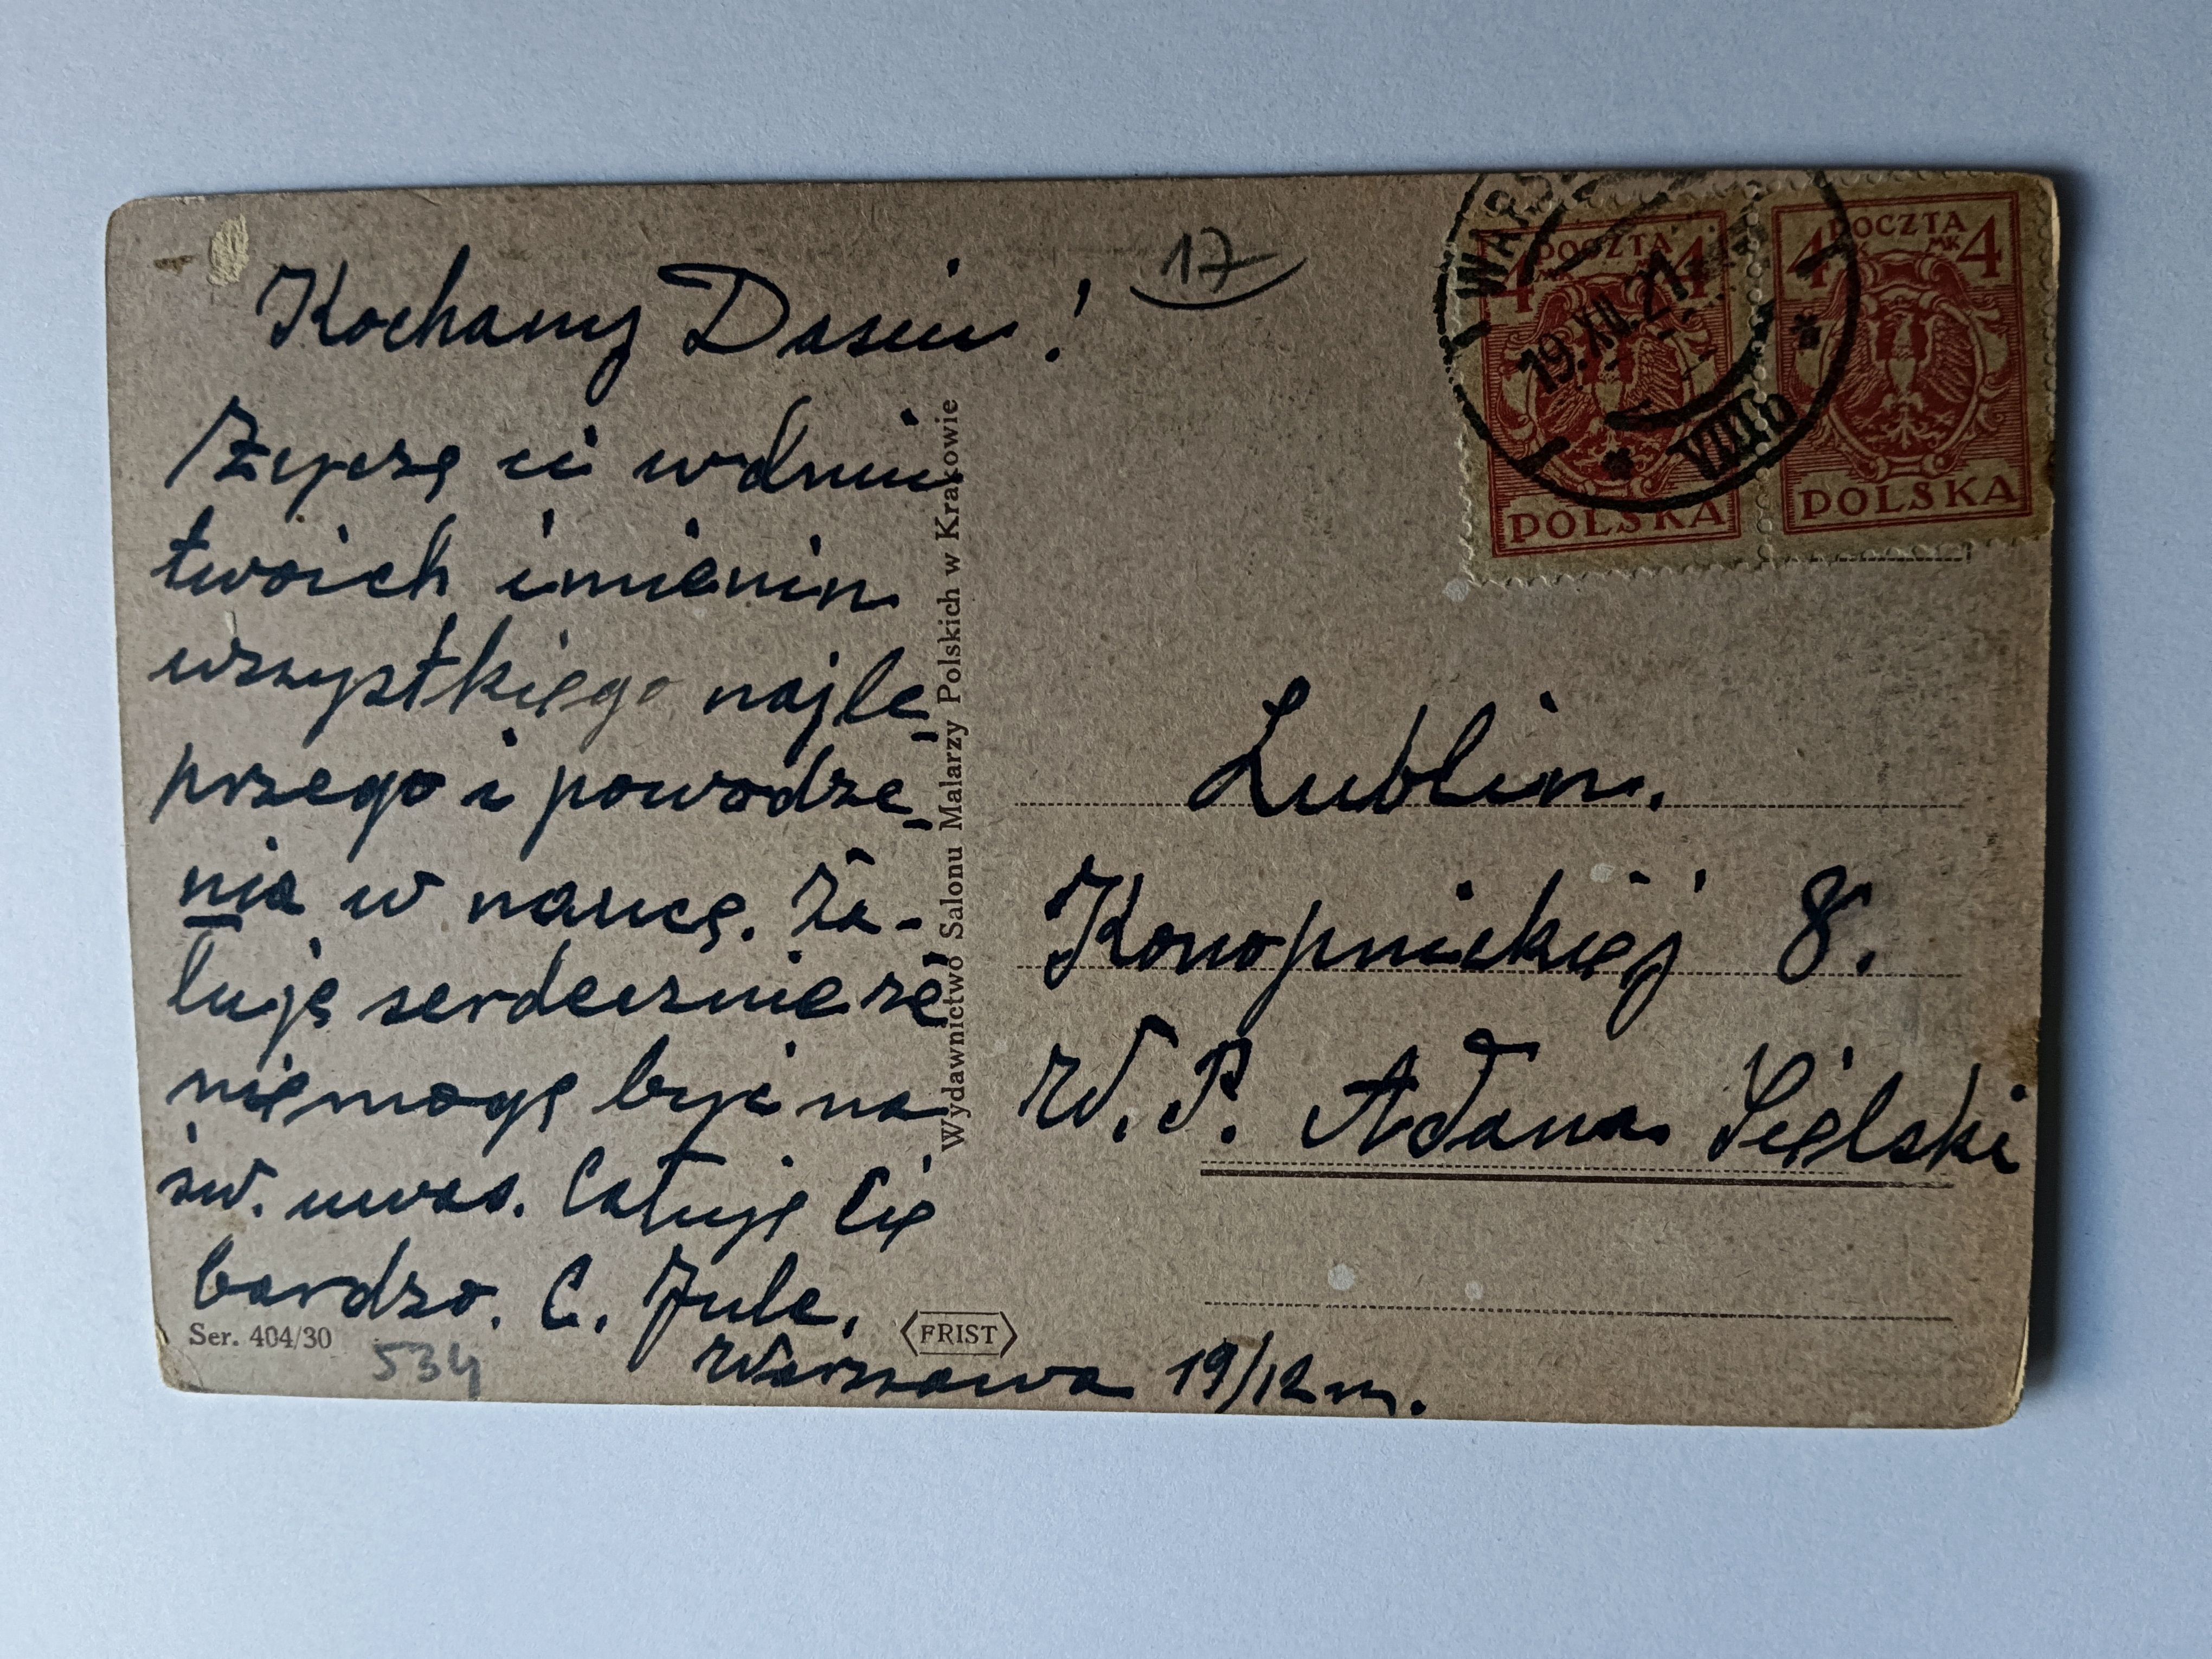 17
Kochany Dasiu!
Życzę ci w dniu
twoich imienin
wszystkiego najle_
przego i powodze_
nia w nauce. Ża-
luję serdecznie że
nie mogę być na
św. u was. Całuję Cię
bardzo. C. Jule.
Warszawa 19/12 m.
Ser. 404/30
534
FRIST
Wydawnictwo Salonu Malarzy Polskich w Krakowie
POCZTA
4 MK 4
POLSKA
POCZTA
4 MK 4
POLSKA
19.XII.21
VIIIb
Lublin.
Konopnickiej 8.
W. P. Adam Sielski